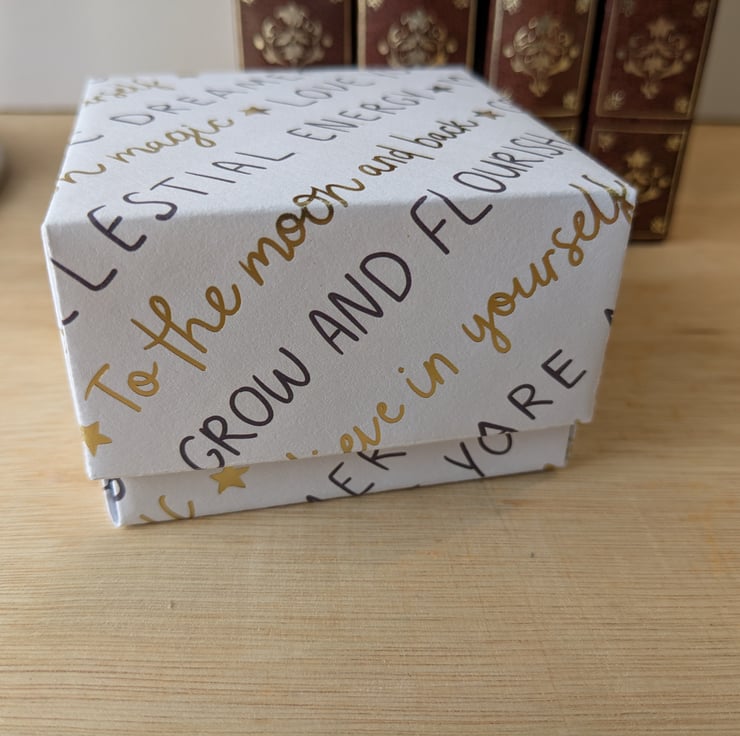 DREAM
LOVE
n magic
LESTIAL ENERGY
To the moon and back
GROW AND FLOURISH
lieve in yourself
YO
ARE